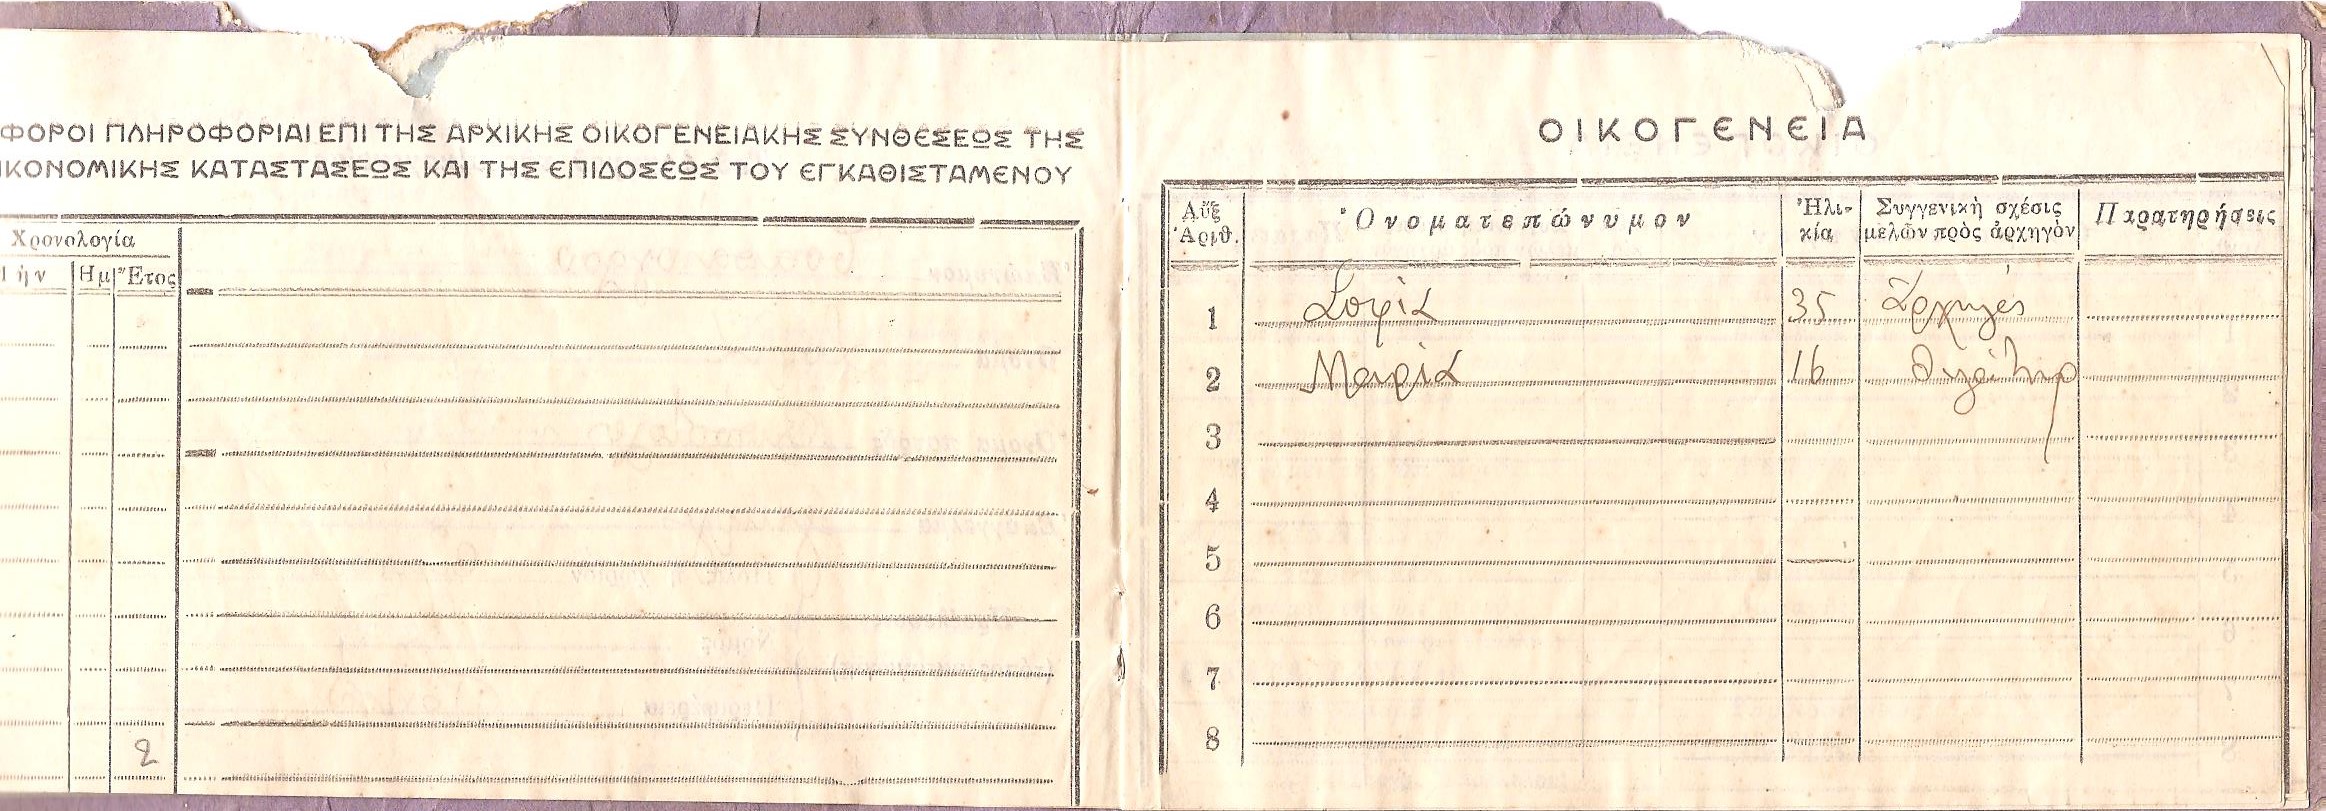 ΦΟΡΟΙ ΠΛΗΡΟΦΟΡΙΑΙ ΕΠΙ ΤΗΣ ΑΡΧΙΚΗΣ ΟΙΚΟΓΕΝΕΙΑΚΗΣ ΣΥΝΘΕΣΕΩΣ ΤΗΣ
ΙΚΟΝΟΜΙΚΗΣ ΚΑΤΑΣΤΑΣΕΩΣ ΚΑΙ ΤΗΣ ΕΠΙΔΟΣΕΩΣ ΤΟΥ ΕΓΚΑΘΙΣΤΑΜΕΝΟΥ
Χρονολογία
ήν Ημ Ἔτος
2
ΟΙΚΟΓΕΝΕΙΑ
Αὔξ Ὀνοματεπώνυμον Ἡλι- Συγγενικὴ σχέσις Παρατηρήσεις
Ἀριθ. κία μελῶν πρὸς ἀρχηγὸν
1 Σοφία 35 Ἀρχηγός
2 Μαρία 16 θυγάτηρ
3
4
5
6
7
8